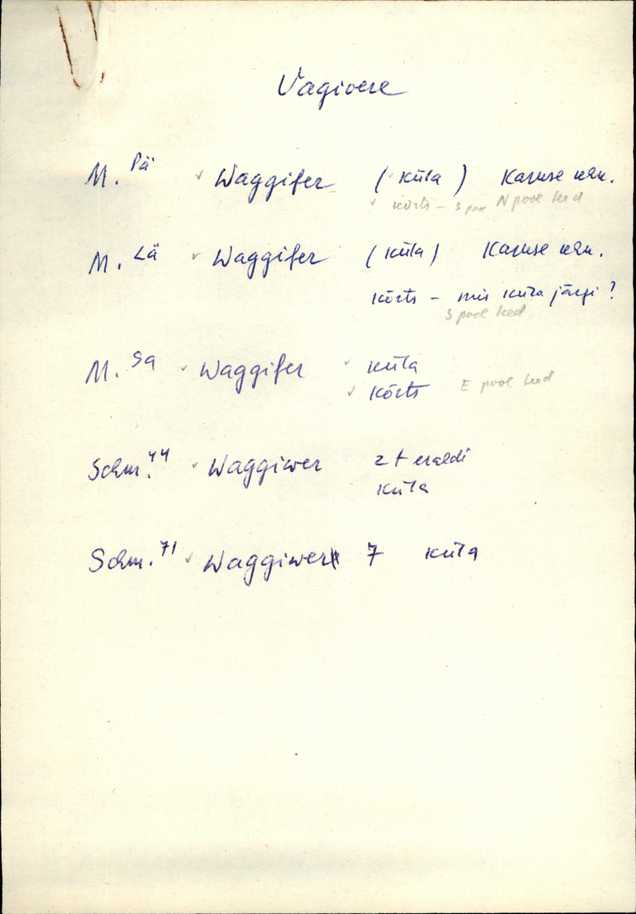 Vagivere
M. Pä ✓ Waggifer (küla) Karuse khk.
✓ kõrts – S pool N pool teed
M. Lä ✓ Waggifer (küla) Karuse khk.
kõrts – mis küla järgi?
S pool teed
M. Sa ✓ Waggifer ✓ küla
✓ kõrts E pool teed
Schm. 44 ✓ Waggiwer 2 t eraldi
küla
Schm. 71 ✓ Waggiwer 7 küla